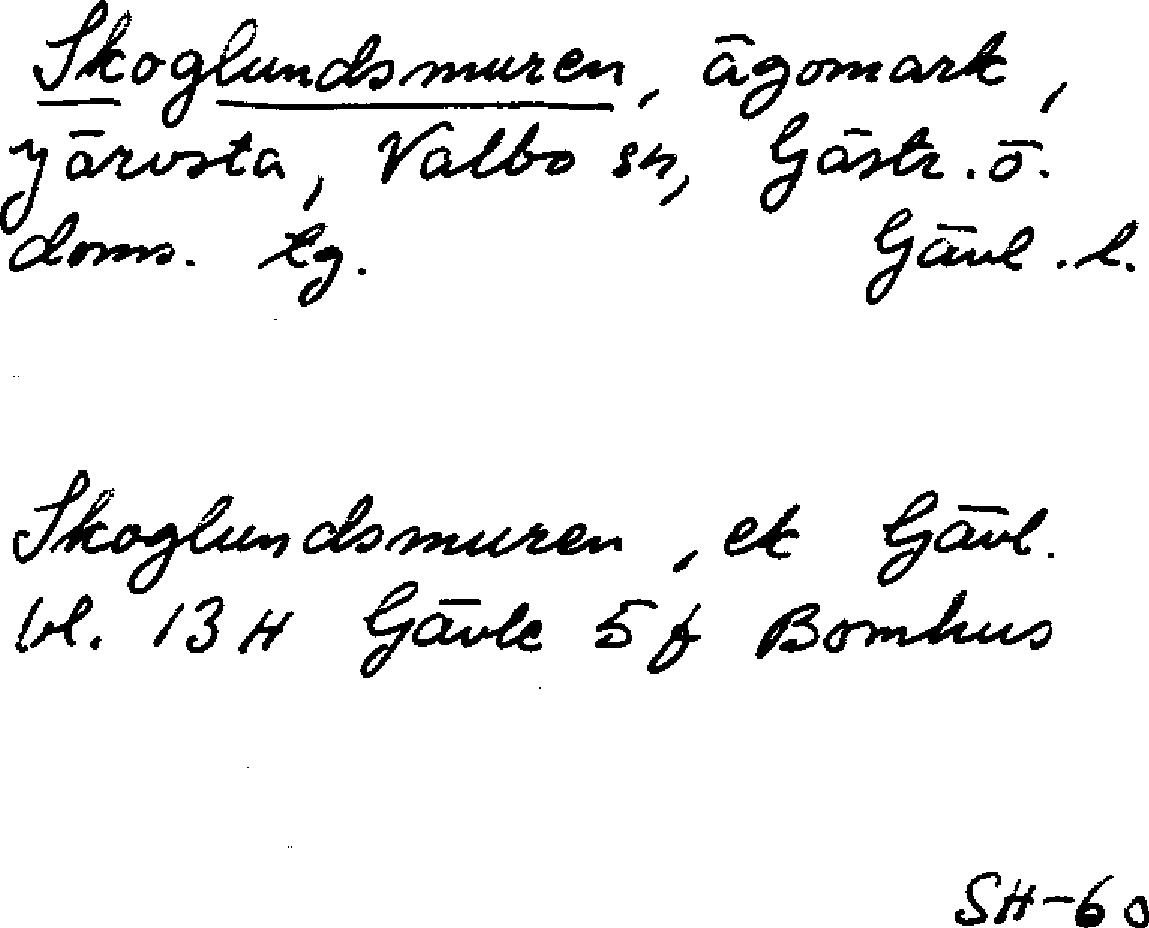 Skoglundsmuren, ägomark,
Järvsta, Valbo sn, Gästr. ö.
doms. tg. Gävl. l.
Skoglundsmuren, ek Gävl.
bl. 13 H Gävle 5 f Bomhus
SH-60